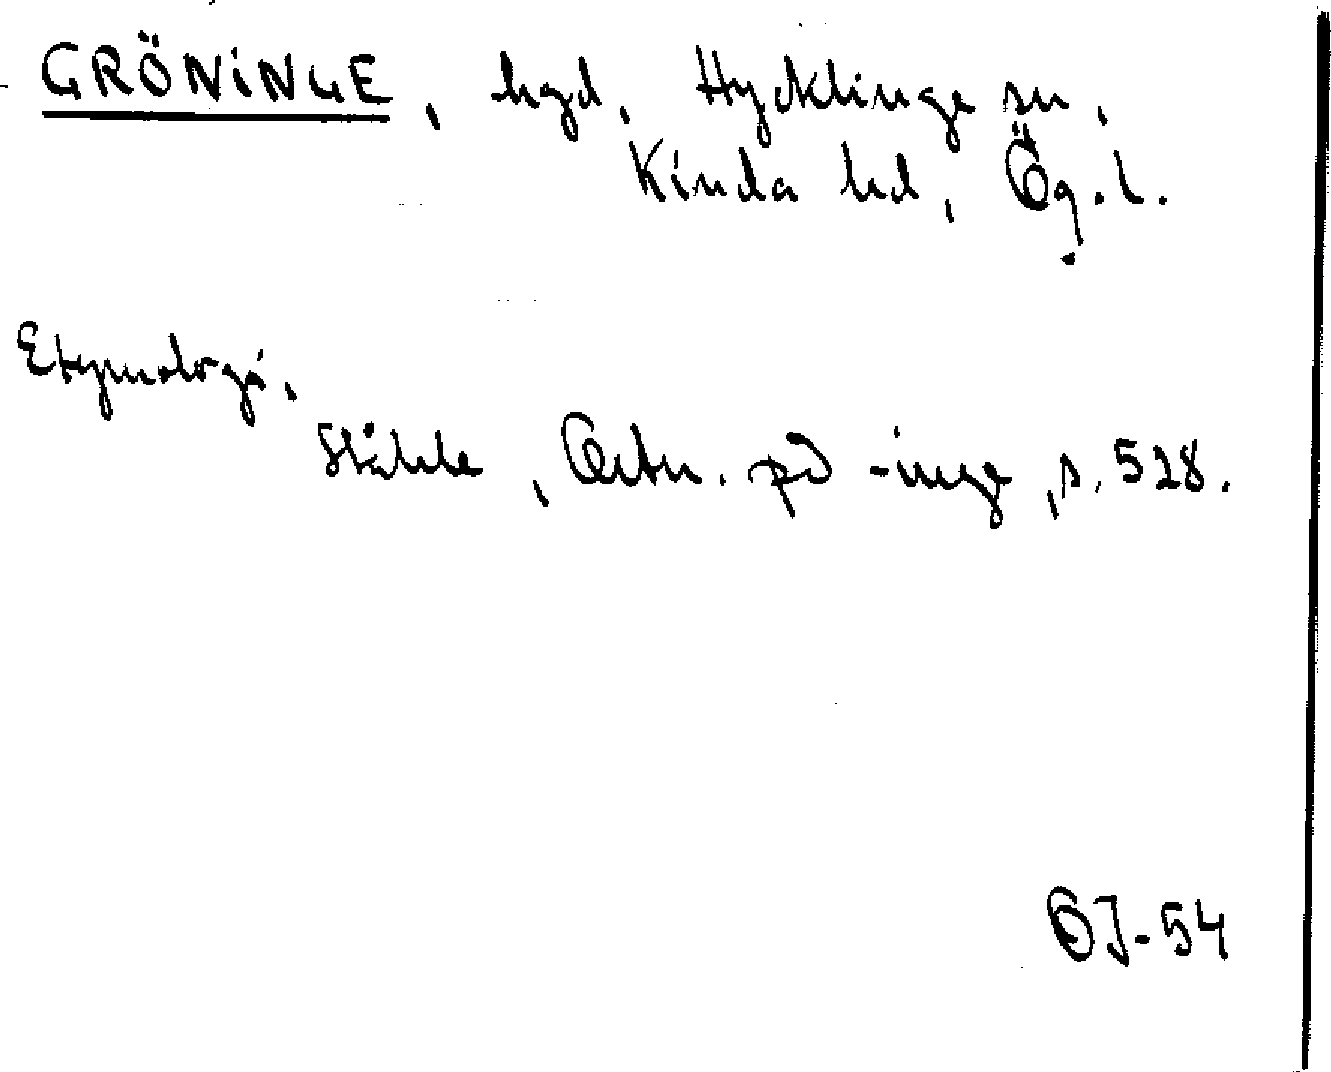 GRÖNINGE, hgd, Hycklinge sn,
Kinda hd, Ög. l.
Etymologi,
Ståhle, Ortn. på -inge, s. 528.
OJ-54